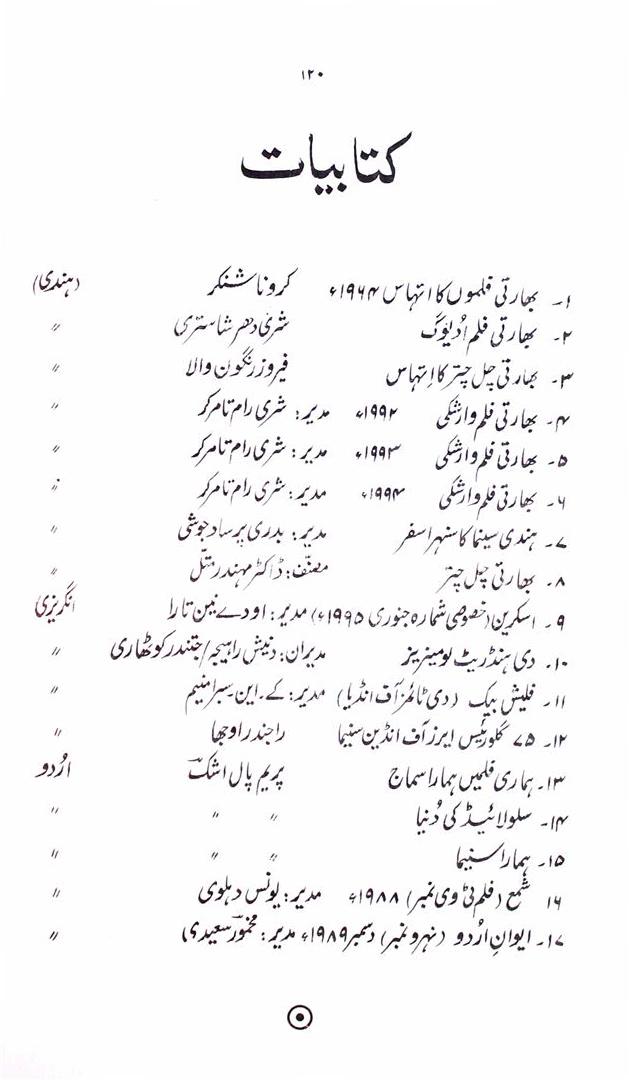 ۱۲۰
کتابیات
۱۔ بھارتی فلموں کا اتہاس ۱۹۶۴ء کرونا شنکر (ہندی)
۲۔ بھارتی فلم اُدیوگ شری دھر شاستری 〃
۳۔ بھارتی چل چتر کا اِتہاس فیروز رنگون والا 〃
۴۔ بھارتی فلم وارشکی ۱۹۹۲ء مدیر: شری رام تامرکر 〃
۵۔ بھارتی فلم وارشکی ۱۹۹۳ء مدیر: شری رام تامرکر 〃
۶۔ بھارتی فلم وارشکی ۱۹۹۴ء مدیر: شری رام تامرکر 〃
۷۔ ہندی سینما کا سنہرا سفر مدیر: بدری پرساد جوشی 〃
۸۔ بھارتی چل چتر مصنّف: ڈاکٹر مہندر متّل 〃
۹۔ اسکرین (خصوصی شمارہ جنوری ۱۹۹۵ء) مدیر: اودے نین تارا انگریزی
۱۰۔ دی ہنڈریٹ لومینریز مدیران: دنیش راہیجہ/جتندر کوٹھاری 〃
۱۱۔ فلیش بیک (دی ٹائمز آف انڈیا) مدیر: کے۔این سبرامنیم 〃
۱۲۔ ۷۵ گلورئیس ایرز آف انڈین سنیما راجندر اوجھا 〃
۱۳۔ ہماری فلمیں ہمارا سماج پریم پال اشکؔ اُردو
۱۴۔ سلولائیڈ کی دُنیا 〃 〃 〃
۱۵۔ ہمارا سنیما 〃 〃 〃
۱۶ شمع (فلم ٹی وی نمبر) ۱۹۸۸ء مدیر: یونس دہلوی 〃
۱۷۔ ایوانِ اُردو (نہرو نمبر) دسمبر ۱۹۸۹ء مدیر: مخمورؔ سعیدی) 〃